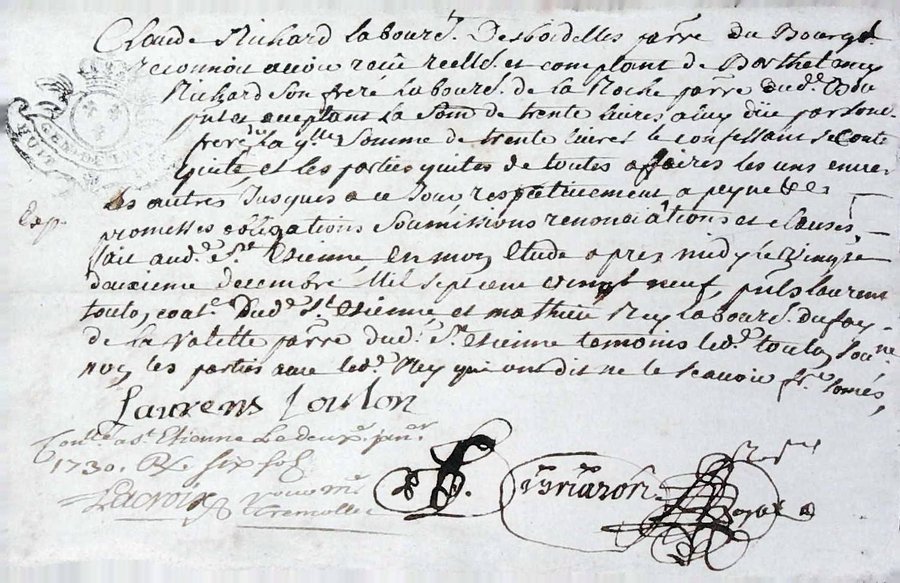 Claude Richard laboure.r Desbidelles parr.e du Bourg
reconnoit avoir reçu reellem.t et comptant de Barthelemy
Richard son frere labour.r de la Roche parr.e dud.t
la Som.e de trente livres a luy düe par son
frere la q.lle Somme de trente livres le confessant se conte
quitte, et les parties quittes de toutes affaires les uns envers
les autres Jusques a ce Jour respectivement, a peyne &
Exp.
promesses obligations Soumissions renonciations et clauses,
fait aud.t S.t Etienne en mon etude apres midy le vingt
deuxieme decembre Mil sept cent vingt neuf, pnts laurens
toulon, dud.t S.t etienne et mathieu Rey labour.r du fay
de la valette parr.e dud.t S.t etienne temoins led.t toulon Soune
non les parties avec led.t Rey qui ont dit ne le scavoir
Laurens Toulon
a St Etienne Le deux.e jan.er
1730. R. six sols
Lacroix
Tremollet
Briazon
Royal
GEN. DE
HUIT